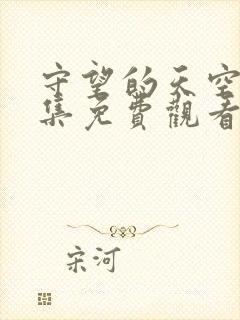 守望的天空
集免費觀看
宋河